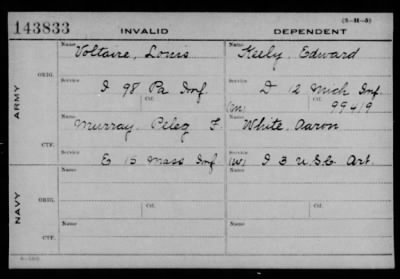 143833 INVALID DEPENDENT
(3-H-5)
Name Voltaire, Louis Name Keely, Edward
ARMY
ORIG.
Service I 98 Pa Inf. Service D 12 Mich Inf
Ctf. (m) Ctf. 99419
Name Murray, Peleg F. Name White, Aaron
CTF.
Service E 15 Mass Inf Service (W) I 3 U.S.C. Art.
NAVY
Name Name
ORIG.
Ctf. Ctf.
Name Name
CTF.